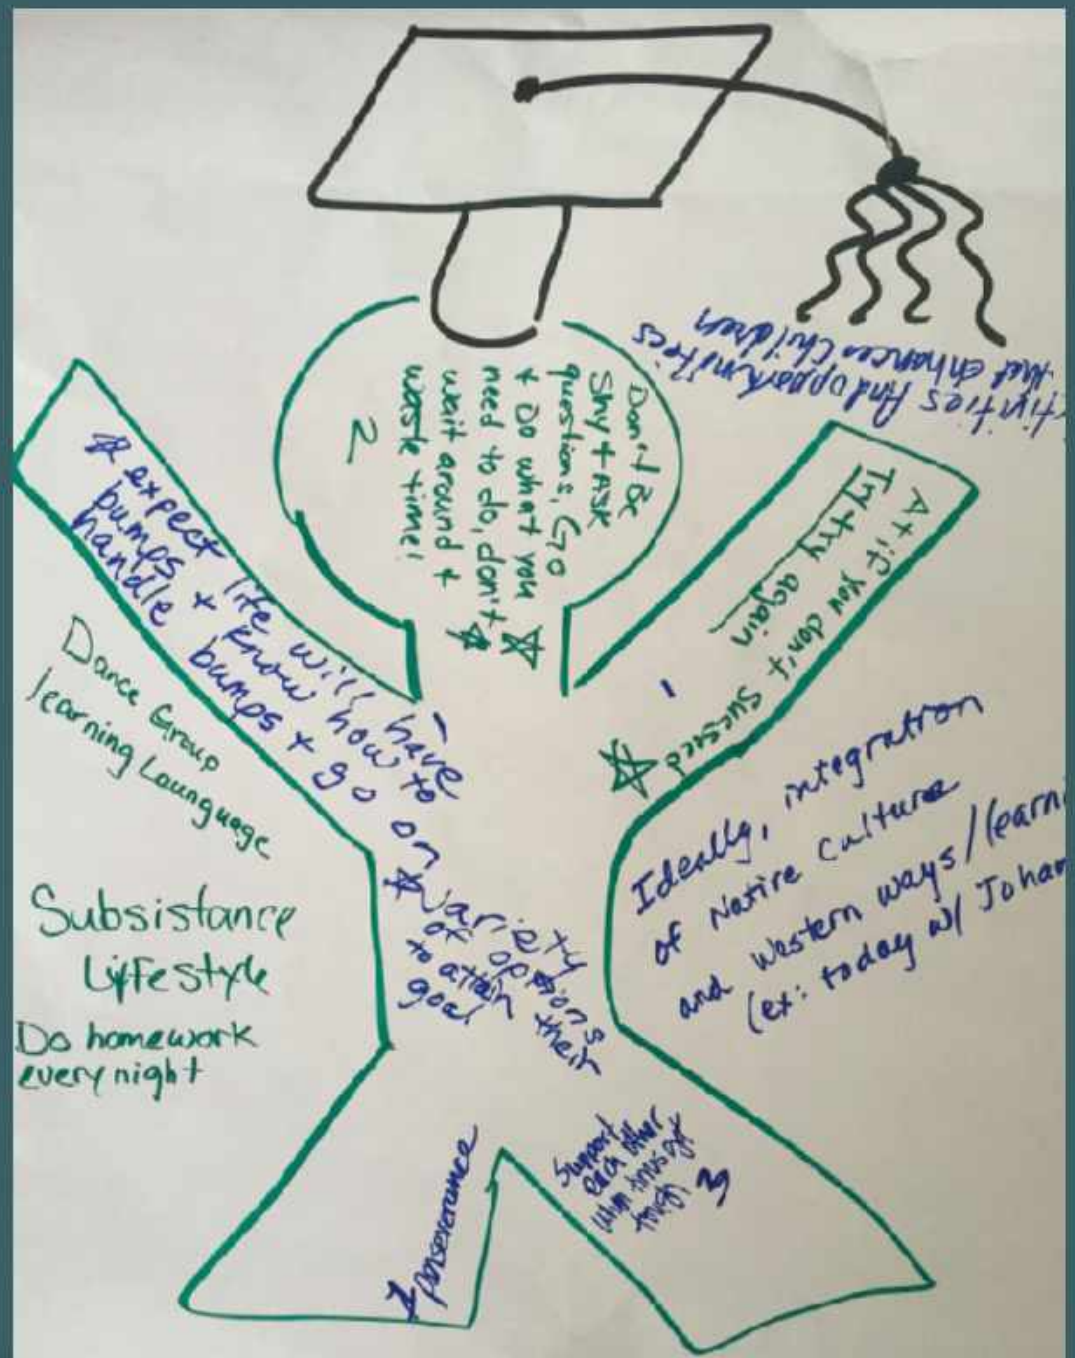 tivities And opportunities
that enhances children
Don't Be
Shy + ASK
questions, Go
+ Do what you
need to do, don't
wait around +
waste time!
2
At if you don't sucseed
Try try again
1
expect life will have
bumps + know how to
handle bumps + go on
Dance Group
learning Launguage
Subsistance
Lifestyle
Do homework
every night
Variety
of options
to attain their
goal
Ideally, integration
of Native culture
and Western ways/learni
(ex: today w/ Johan
perseverance
Support
each other
when times get
tough
3